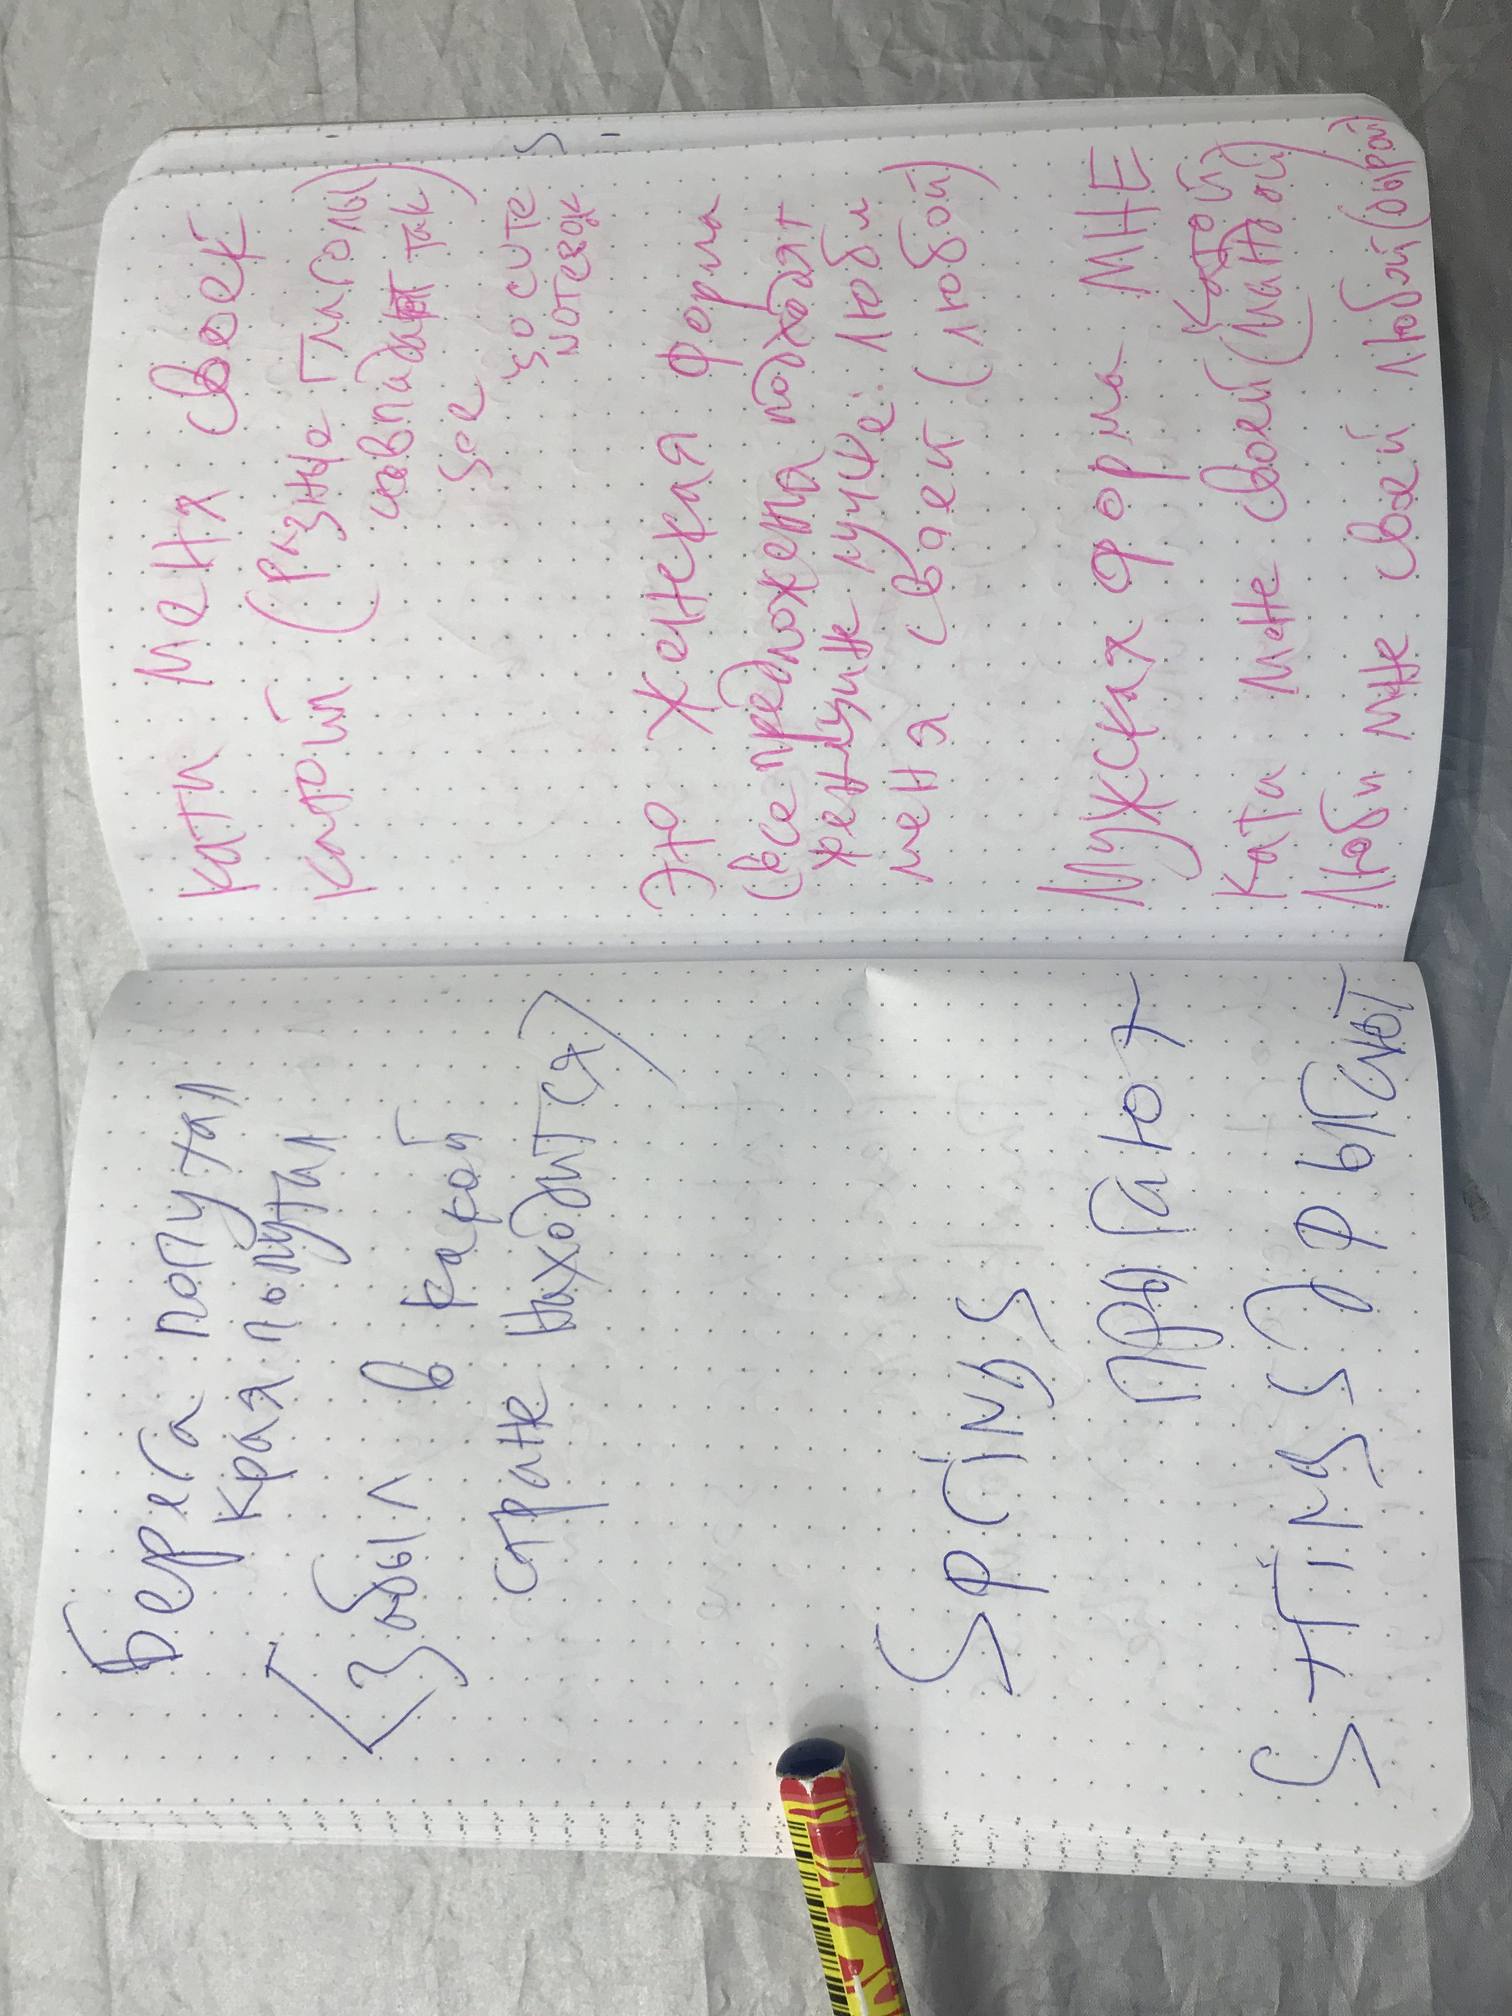 Берега попутал
края попутал
Забыл в какой
стране находится
Spring
прыгают
String рыгают
кати меня своей
катой (Разные глаголы
так
Это женская форма
Все предложения подходят
женщине лучше: люби
меня своей (любой)
Мужская форма МНЕ
катой
Кати мне своей (манной)
Люби мне своей любой (дырой)